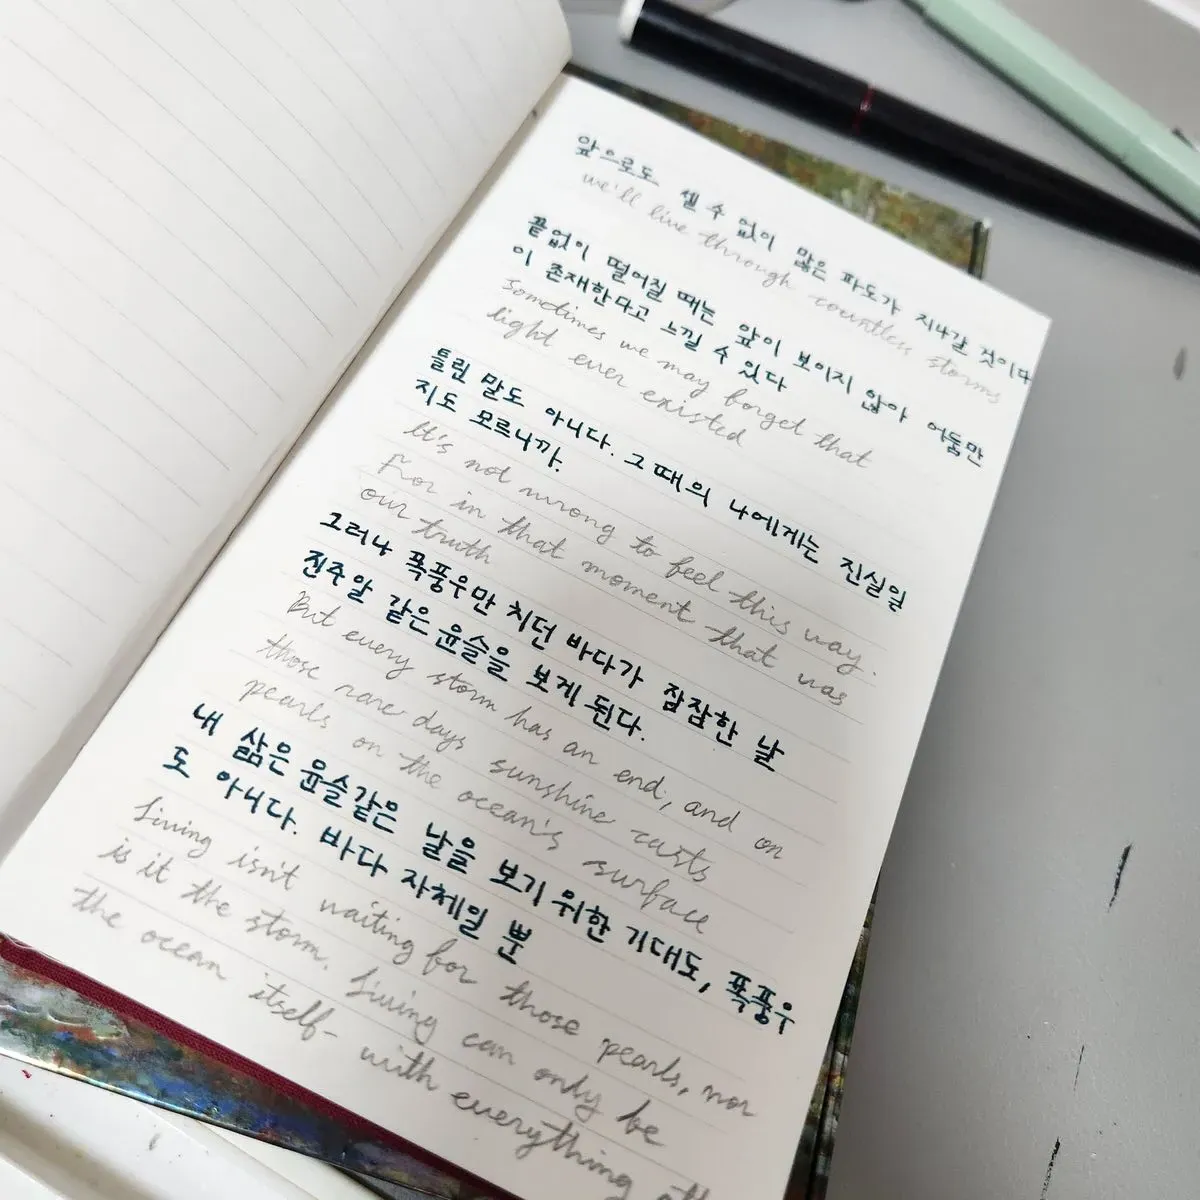 앞으로도 셀 수 없이 많은 파도가 지나갈 것이다
we'll live through countless storms
끝없이 떨어질 때는 앞이 보이지 않아 어둠만
이 존재한다고 느낄 수 있다
Sometimes we may forget that
light ever existed
틀린 말도 아니다. 그 때의 나에게는 진실일
지도 모르니까.
It's not wrong to feel this way.
For in that moment that was
our truth
그러나 폭풍우만 치던 바다가 잠잠한 날
진주알 같은 윤슬을 보게 된다.
But every storm has an end, and on
those rare days sunshine casts
pearls on the ocean's surface
내 삶은 윤슬같은 날을 보기 위한 기대도, 폭풍우
도 아니다. 바다 자체일 뿐
Living isn't waiting for those pearls, nor
is it the storm. Living can only be
the ocean itself- with everything